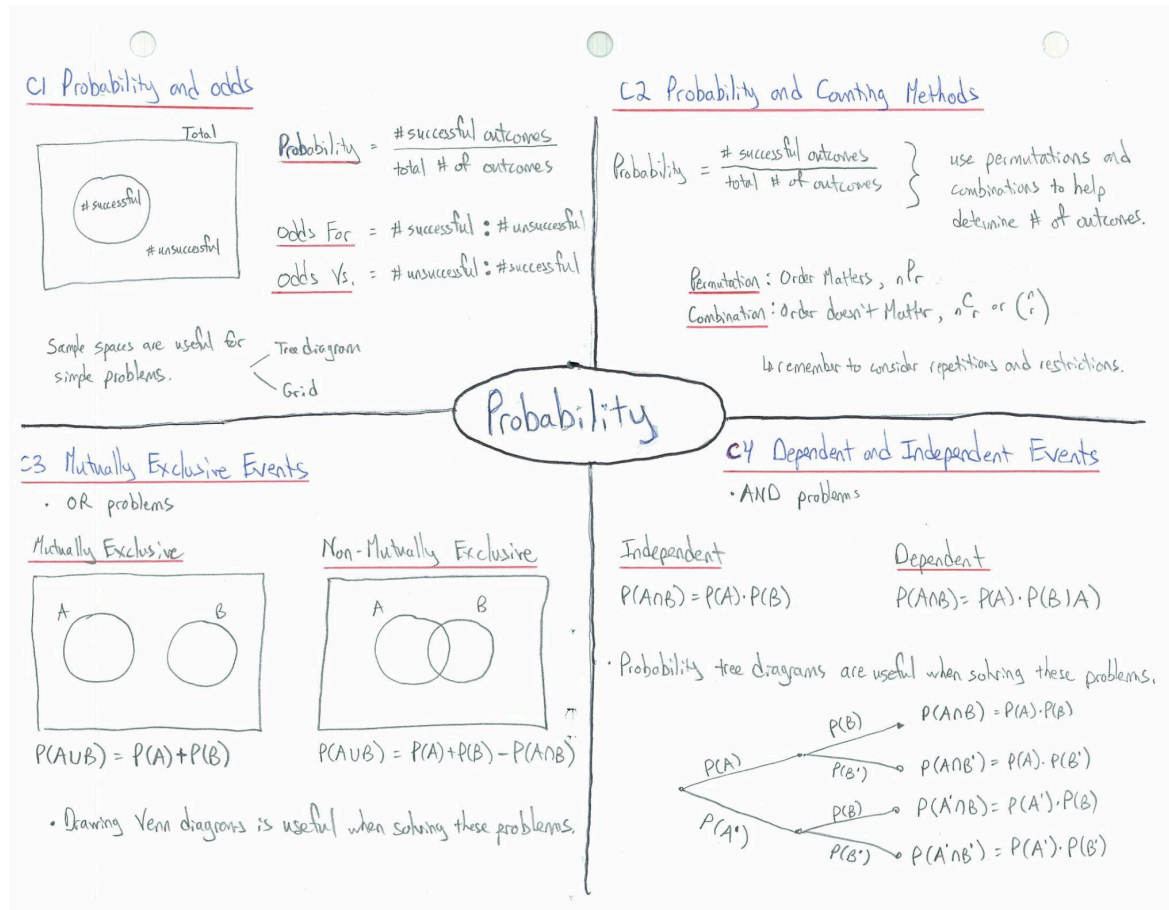 C1 Probability and odds
Total
#successful
#unsuccessful
Probability = #successful outcomes / total # of outcomes
Odds For = #successful : #unsuccessful
Odds Vs. = #unsuccessful : #successful
Sample spaces are useful for
simple problems.
Tree diagram
Grid
C2 Probability and Counting Methods
Probability = # successful outcomes / total # of outcomes
use permutations and
combinations to help
determine # of outcomes.
Permutation : Order Matters, nPr
Combination : Order doesn't Matter, nCr or (n r)
↳ remember to consider repetitions and restrictions.
Probability
C3 Mutually Exclusive Events
• OR problems
Mutually Exclusive
A B
P(A∪B) = P(A)+P(B)
Non-Mutually Exclusive
A B
P(A∪B) = P(A)+P(B)-P(A∩B)
• Drawing Venn diagrams is useful when solving these problems.
C4 Dependent and Independent Events
• AND problems
Independent
P(A∩B) = P(A)·P(B)
Dependent
P(A∩B) = P(A)·P(B|A)
• Probability tree diagrams are useful when solving these problems.
P(A)
P(A')
P(B) P(A∩B) = P(A)·P(B)
P(B') P(A∩B') = P(A)·P(B')
P(B) P(A'∩B) = P(A')·P(B)
P(B') P(A'∩B') = P(A')·P(B')